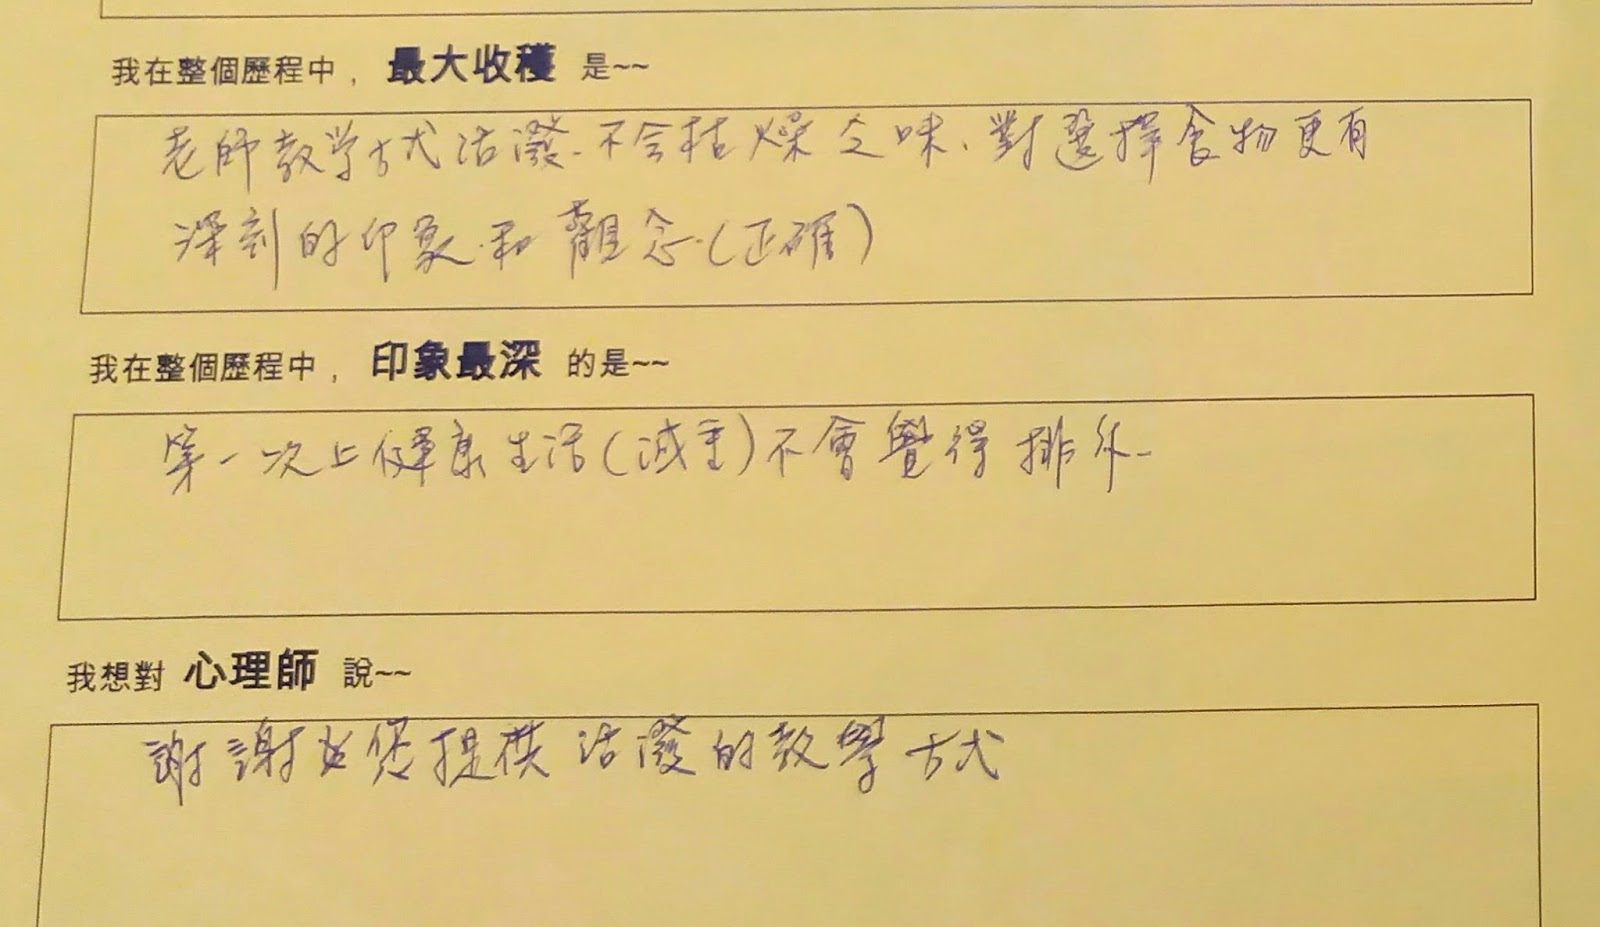 我在整個歷程中，最大收穫 是~~
老師教学方式活潑.不会枯燥乏味、對選擇食物更有
深刻的印象.和觀念.(正確)
我在整個歷程中，印象最深 的是~~
第一次上健康生活(減重)不會覺得排斥.
我想對 心理師 說~~
謝謝您提供活潑的教學方式